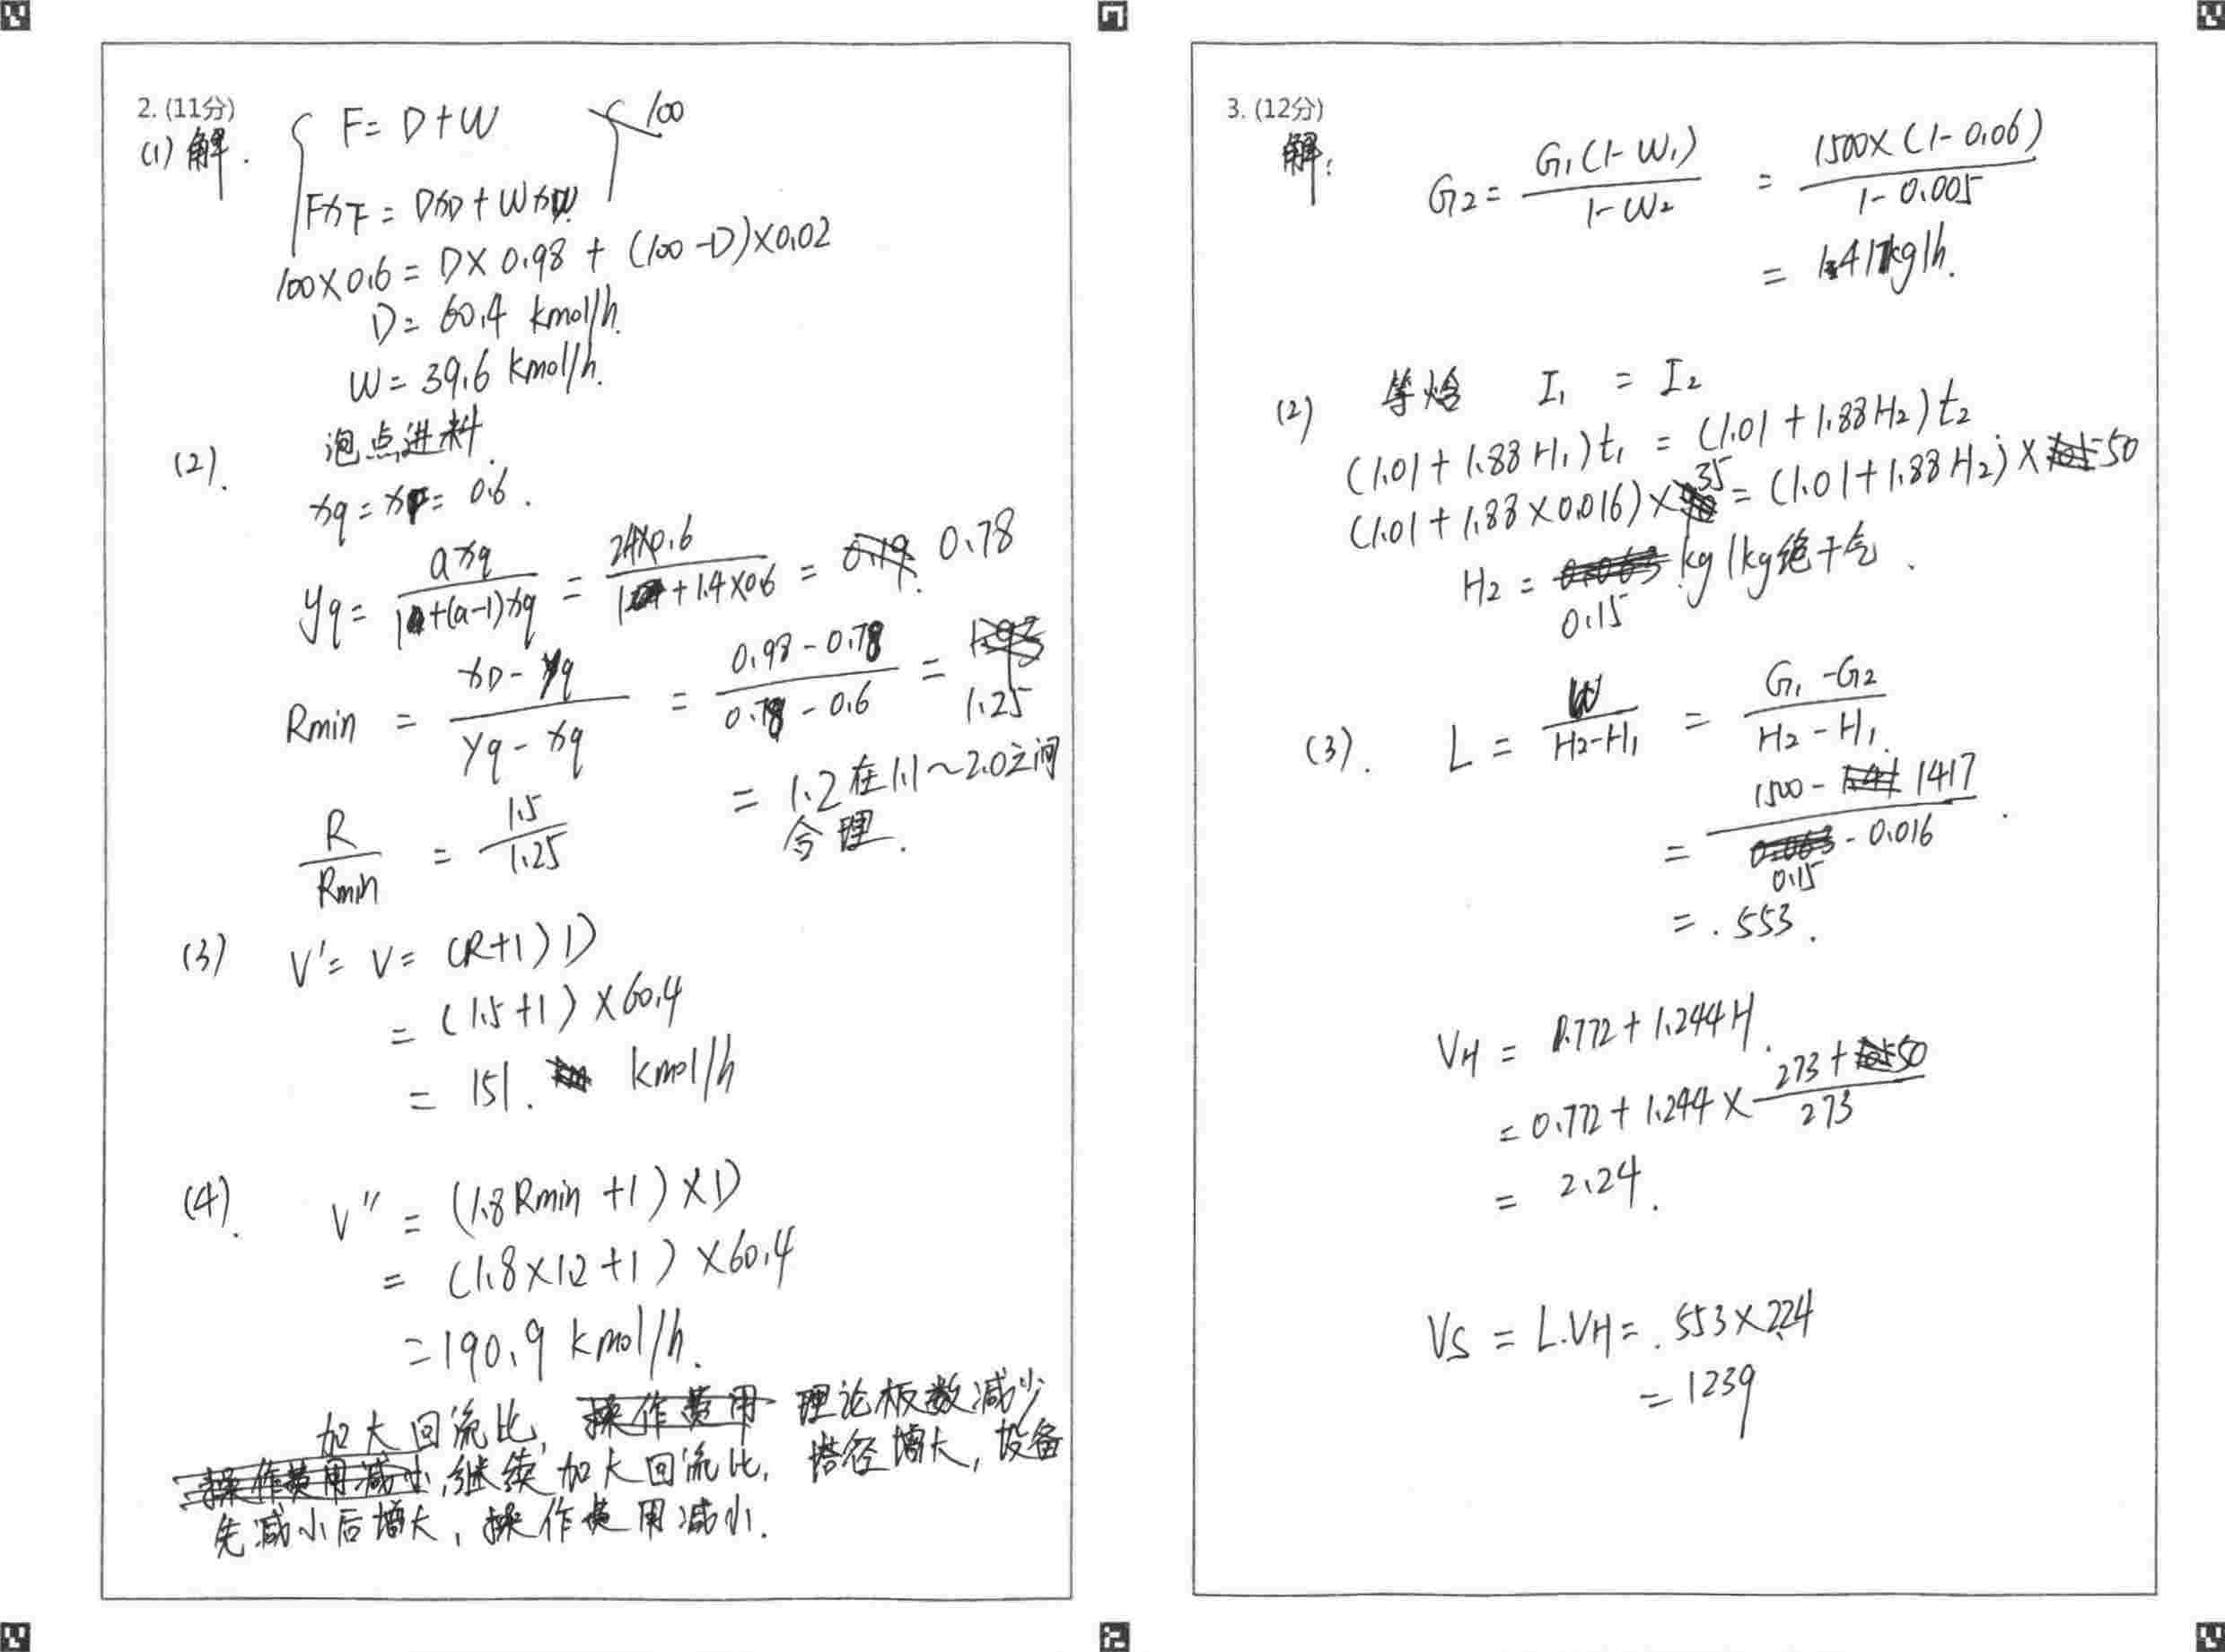 2. (11分)
(1) 解.
F = D + W
100
FxF = DxD + WxW
100×0.6 = D×0.98 + (100-D)×0.02
D = 60.4 kmol/h.
W = 39.6 kmol/h.
(2). 泡点进料.
xq = xF = 0.6.
yq = axq / 1+(a-1)xq = 2.4×0.6 / 1+1.4×0.6 = 0.78
Rmin = xD-yq / yq-xq = 0.98-0.78 / 0.78-0.6 = 1.25
R / Rmin = 1.5 / 1.25 = 1.2 在1.1~2.0之间
合理.
(3) V' = V = (R+1)D
= (1.5+1)×60.4
= 151. kmol/h
(4). V'' = (1.8Rmin+1)×D
= (1.8×1.2+1)×60.4
= 190.9 kmol/h.
加大回流比, 操作费用 理论板数减少
操作费用减小,继续加大回流比, 塔径增大, 设备
先减小后增大, 操作费用减小.
3. (12分)
解:
G2 = G1(1-W1) / 1-W2 = 1500×(1-0.06) / 1-0.005
= 1417kg/h.
(2) 等焓 I1 = I2
(1.01+1.88H1)t1 = (1.01+1.88H2)t2
(1.01+1.88×0.016)×35 = (1.01+1.88H2)×50
H2 = 0.063 kg/kg绝干气.
0.15
(3). L = W / H2-H1 = G1-G2 / H2-H1.
= 1500-1417 / 0.15-0.016.
= .553.
VH = 0.772+1.244H.
= 0.772+1.244× 273+50 / 273
= 2.24.
VS = L.VH = .553×2.24
= 1239